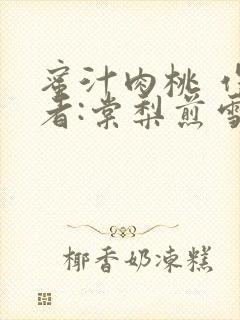 蜜汁肉桃 作
者:棠梨煎雪
椰香奶冻糕